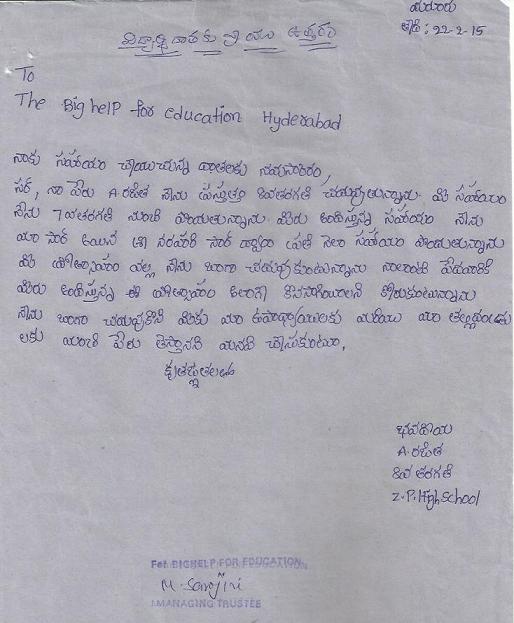 మరూరు
తేది : 22-2-15
విద్యార్థి దాతకు వ్రాయు ఉత్తరం
To
The Big help for education Hyderabad
నాకు సహాయం చేయుచున్న దాతలకు నమస్కారం,
సర్, నా పేరు A.రజిత నేను ప్రస్తుతం 8వతరగతి చదువుతున్నాను. మీ సహాయం
నేను 7వతరగతి నుంచి పొందుతున్నాను మీరు అందిస్తున్న సహాయం నేను
మా సార్ అయిన నరహరి సార్ ద్వారా ప్రతి నెలా సహాయం పొందుతున్నాను
మీ ప్రోత్సాహం వల్ల నేను బాగా చదువుకుంటున్నాను నాలాంటి పేదవారికి
మీరు అందిస్తున్న ఈ ప్రోత్సాహం ఇలాగే కొనసాగించాలని కోరుకుంటున్నాను
నేను బాగా చదువుకొని మీకు మా ఉపాధ్యాయులకు మరియు మా తల్లిదండ్రు
లకు మంచి పేరు తెస్తానని మనవి చేసుకుంటూ,
కృతజ్ఞతలతో
భవదీయ
A.రజిత
8వ తరగతి
Z.P.High School
For BIGHELP FOR EDUCATION
M. Sarojini
MANAGING TRUSTEE